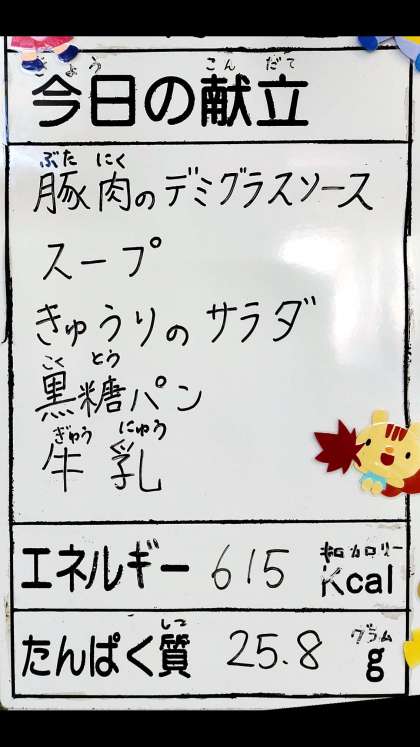 きょう こんだて
今日の献立
ぶた にく
豚肉のデミグラスソース
スープ
きゅうりの サラダ
こく とう
黒糖パン
ぎゅう にゅう
牛乳
キロカロリー
エネルギー 615 Kcal
しつ グラム
たんぱく質 25.8 g